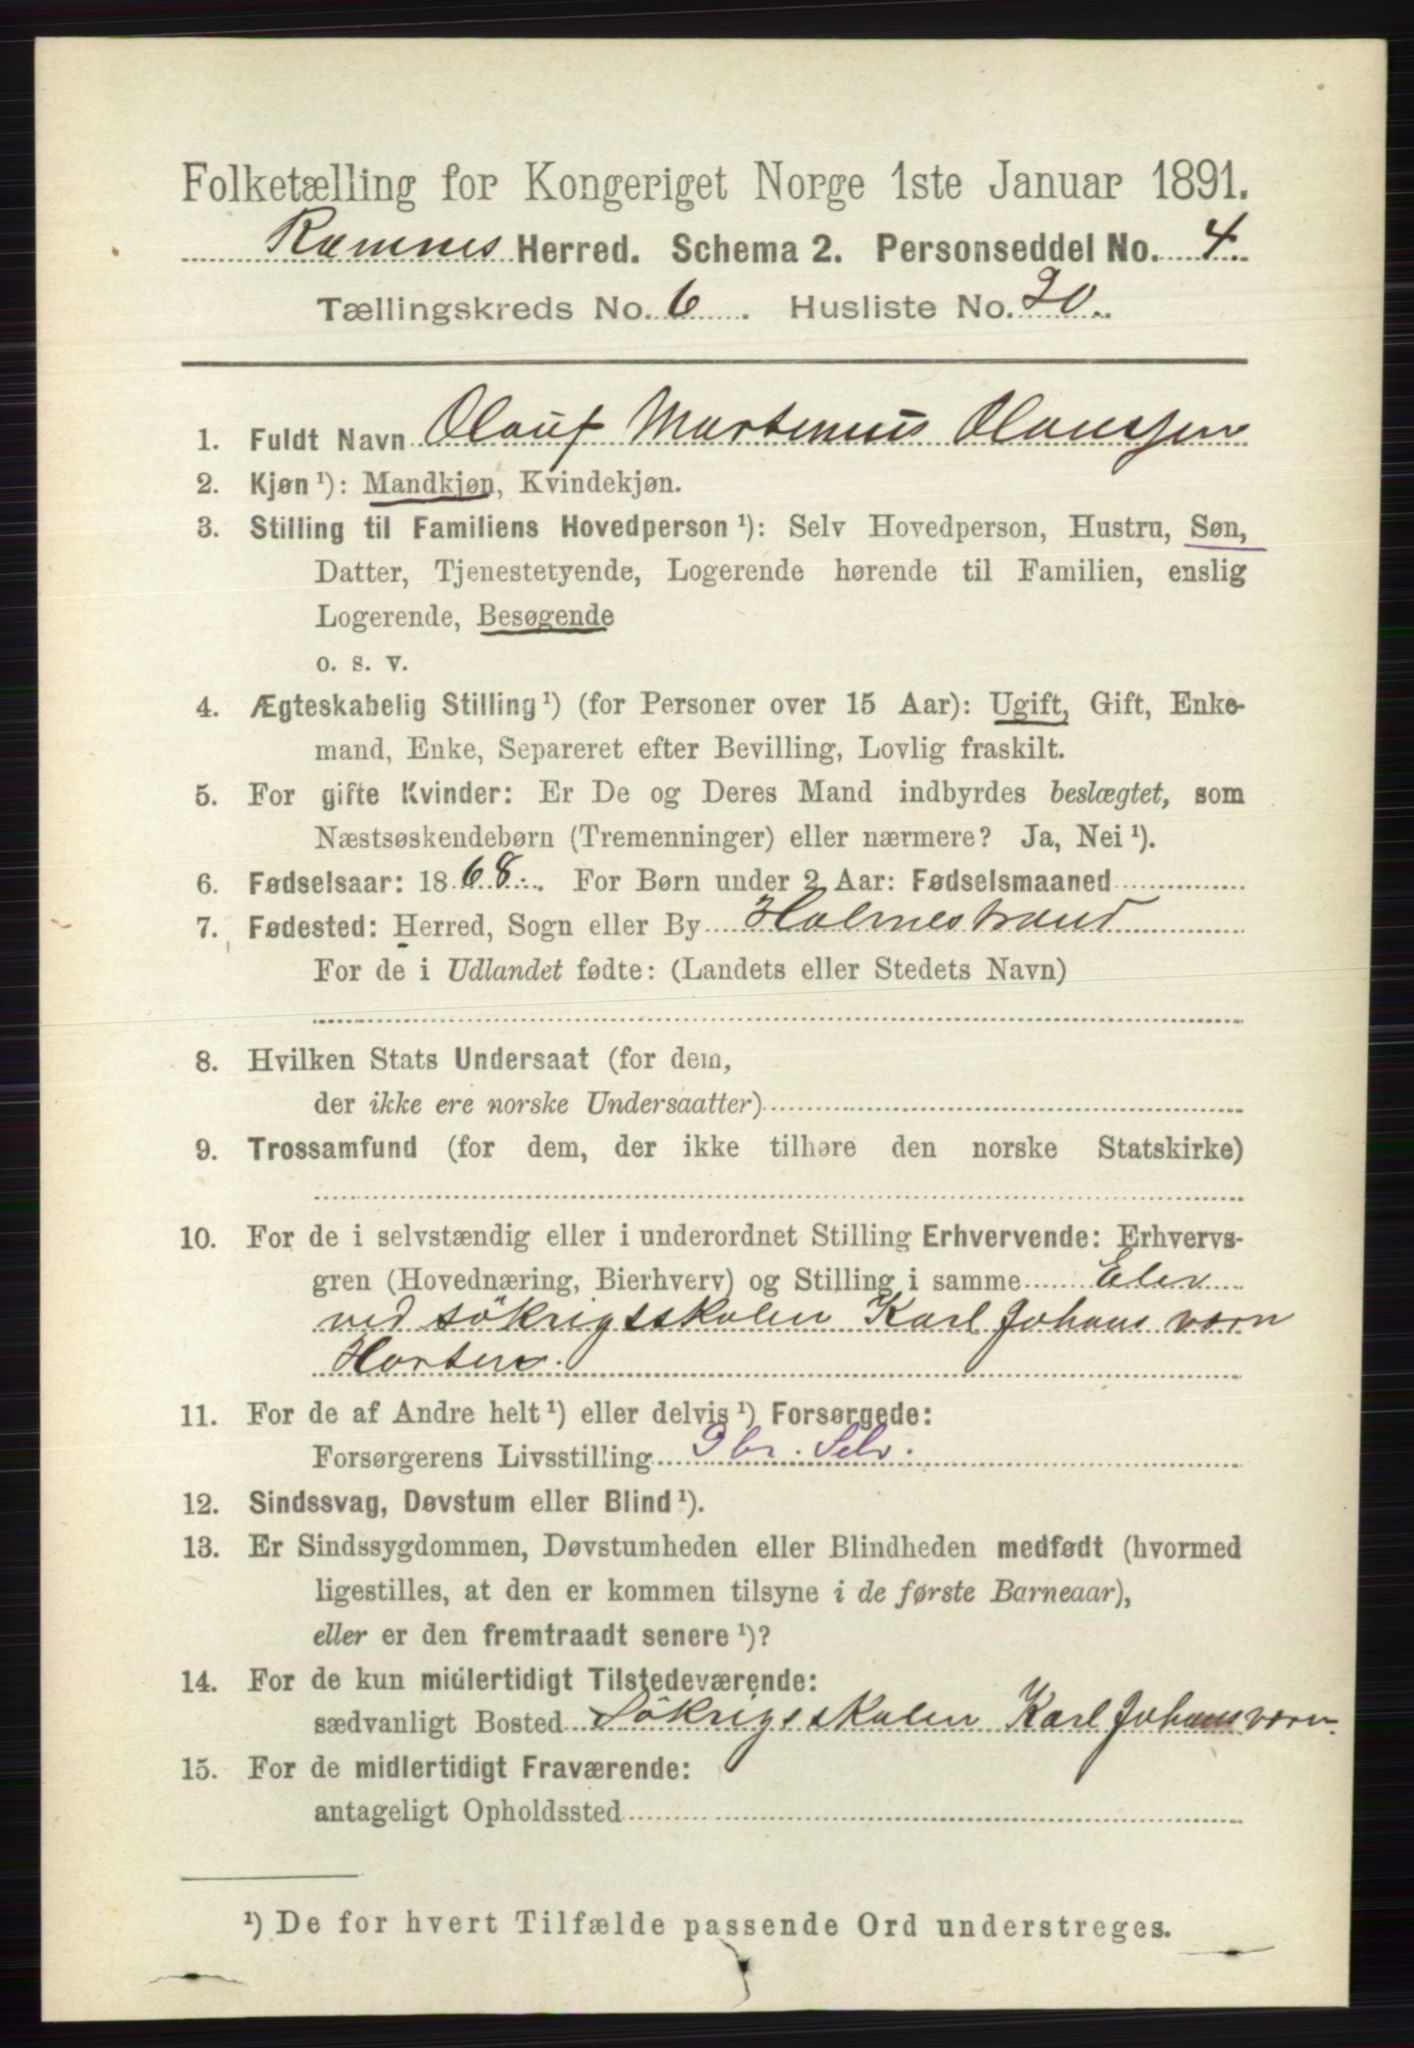 Folketælling for Kongeriget Norge 1ste Januar 1891.
Ramnes Herred. Schema 2. Personseddel No. 4
Tællingskreds No. 6. Husliste No. 20.
1. Fuldt Navn Olauf Martenius Hanssen
2. Kjøn ¹): Mandkjøn, Kvindekjøn.
3. Stilling til Familiens Hovedperson ¹): Selv Hovedperson, Hustru, Søn,
Datter, Tjenestetyende, Logerende hørende til Familien, enslig
Logerende, Besøgende
o. s. v.
4. Ægteskabelig Stilling ¹) (for Personer over 15 Aar): Ugift, Gift, Enke-
mand, Enke, Separeret efter Bevilling, Lovlig fraskilt.
5. For gifte Kvinder: Er De og Deres Mand indbyrdes beslægtet, som
Næstsøskendebørn (Tremenninger) eller nærmere? Ja, Nei ¹).
6. Fødselsaar: 1868. For Børn under 2 Aar: Fødselsmaaned
7. Fødested: Herred, Sogn eller By Holmestrand
For de i Udlandet fødte: (Landets eller Stedets Navn)
8. Hvilken Stats Undersaat (for dem,
der ikke ere norske Undersaatter)
9. Trossamfund (for dem, der ikke tilhøre den norske Statskirke)
10. For de i selvstændig eller i underordnet Stilling Erhvervende: Erhvervs-
gren (Hovednæring, Bierhverv) og Stilling i samme Elev
ved sökrigsskolen Karl Johans værn
Horten.
11. For de af Andre helt ¹) eller delvis ¹) Forsørgede:
Forsørgerens Livsstilling Gbr. Selv.
12. Sindssvag, Døvstum eller Blind ¹).
13. Er Sindssygdommen, Døvstumheden eller Blindheden medfødt (hvormed
ligestilles, at den er kommen tilsyne i de første Barneaar),
eller er den fremtraadt senere ¹)?
14. For de kun midlertidigt Tilstedeværende:
sædvanligt Bosted Sökrigsskolen Karl Johansværn.
15. For de midlertidigt Fraværende:
antageligt Opholdssted
¹) De for hvert Tilfælde passende Ord understreges.